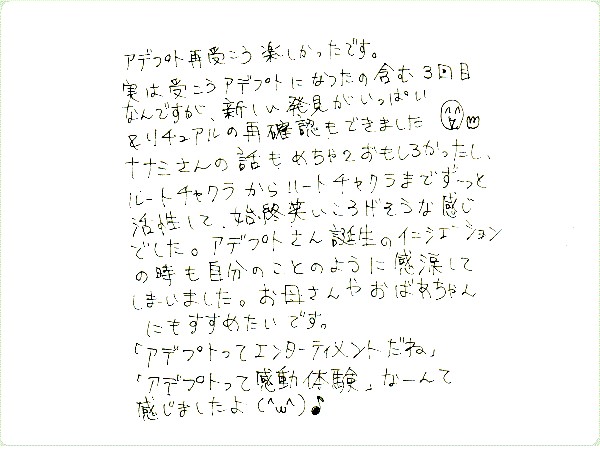 アデプト再受こう楽しかったです。
実は受こうアデプトになったの含む3回目
なんですが、新しい発見がいっぱい
&リチュアルの再確認もできました
ナナミさんの話もめちゃ2おもしろかったし、
ルートチャクラからルートチャクラまでずーっと
活性して、始終笑いころげそうな感じ
でした。アデプトさん誕生のイニシエーション
の時も自分のことのように感涙して
しまいました。お母さんやおばあちゃん
にもすすめたいです。
「アデプトってエンターティメントだね」
「アデプトって感動体験」なーんて
感じましたよ(^ω^)♪